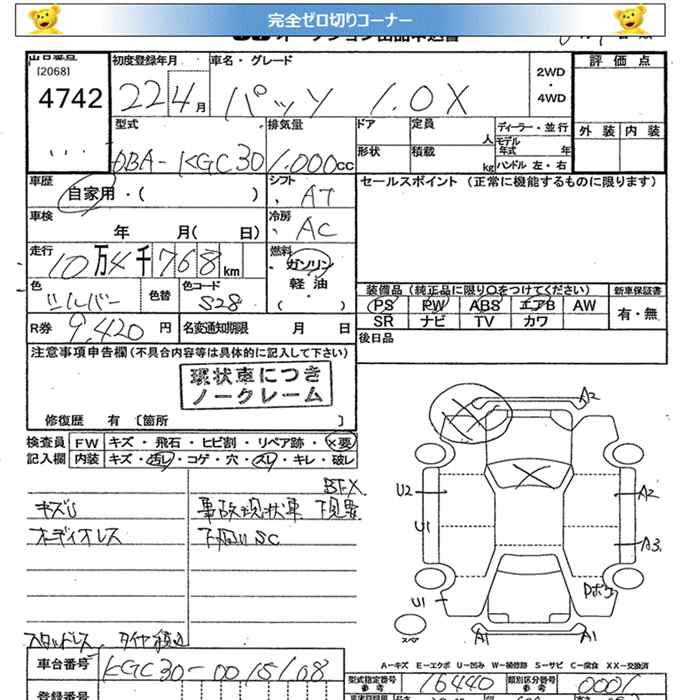 完全ゼロ切りコーナー
オークション出品申込書
出品番号
(2068)
4742
初度登録年月
22 4月
車名・グレード
パッソ 1.0X
2WD
・
4WD
評価点
外装 内装
型式
DBA-KGC30
排気量
1.000cc
ドア
定員
人
形状
積載
kg
ディーラー・並行
モデル年式 年
ハンドル 左・右
車歴
自家用・( )
シフト
AT
セールスポイント (正常に機能するものに限ります)
車検
年 月( 日)
冷房
AC
走行
10万4千768km
燃料
ガソリン
・
軽油
( )
色
シルバー
色替
色コード
S28
装備品(純正品に限り○をつけてください)
PS PW ABS エアB AW
SR ナビ TV カワ
新車保証書
有・無
R券 9,420円
名変通知期限 月 日
後日品
注意事項申告欄(不具合内容等は具体的に記入して下さい)
環状車につき
ノークレーム
修復歴 有 〔箇所 〕
検査員
記入欄
FW キズ・飛石・ヒビ割・リペア跡・×要
内装 キズ・汚レ・コゲ・穴・スレ・キレ・破レ
キズU
オーディオレス
BFX
事故現状車 下見要
下廻りSC
スタッドレス タイヤ積込
A2
U2
A2
U1
A3
U1
Pボケ
スペア
A1
A1
A-キズ E-エクボ U-凹み W-補修跡 S-サビ C-腐食 X-要交換 XX-交換済
車台番号
KGC30-0015108
型式指定番号
参考
16440
類別区分番号
参考
0001
登録番号